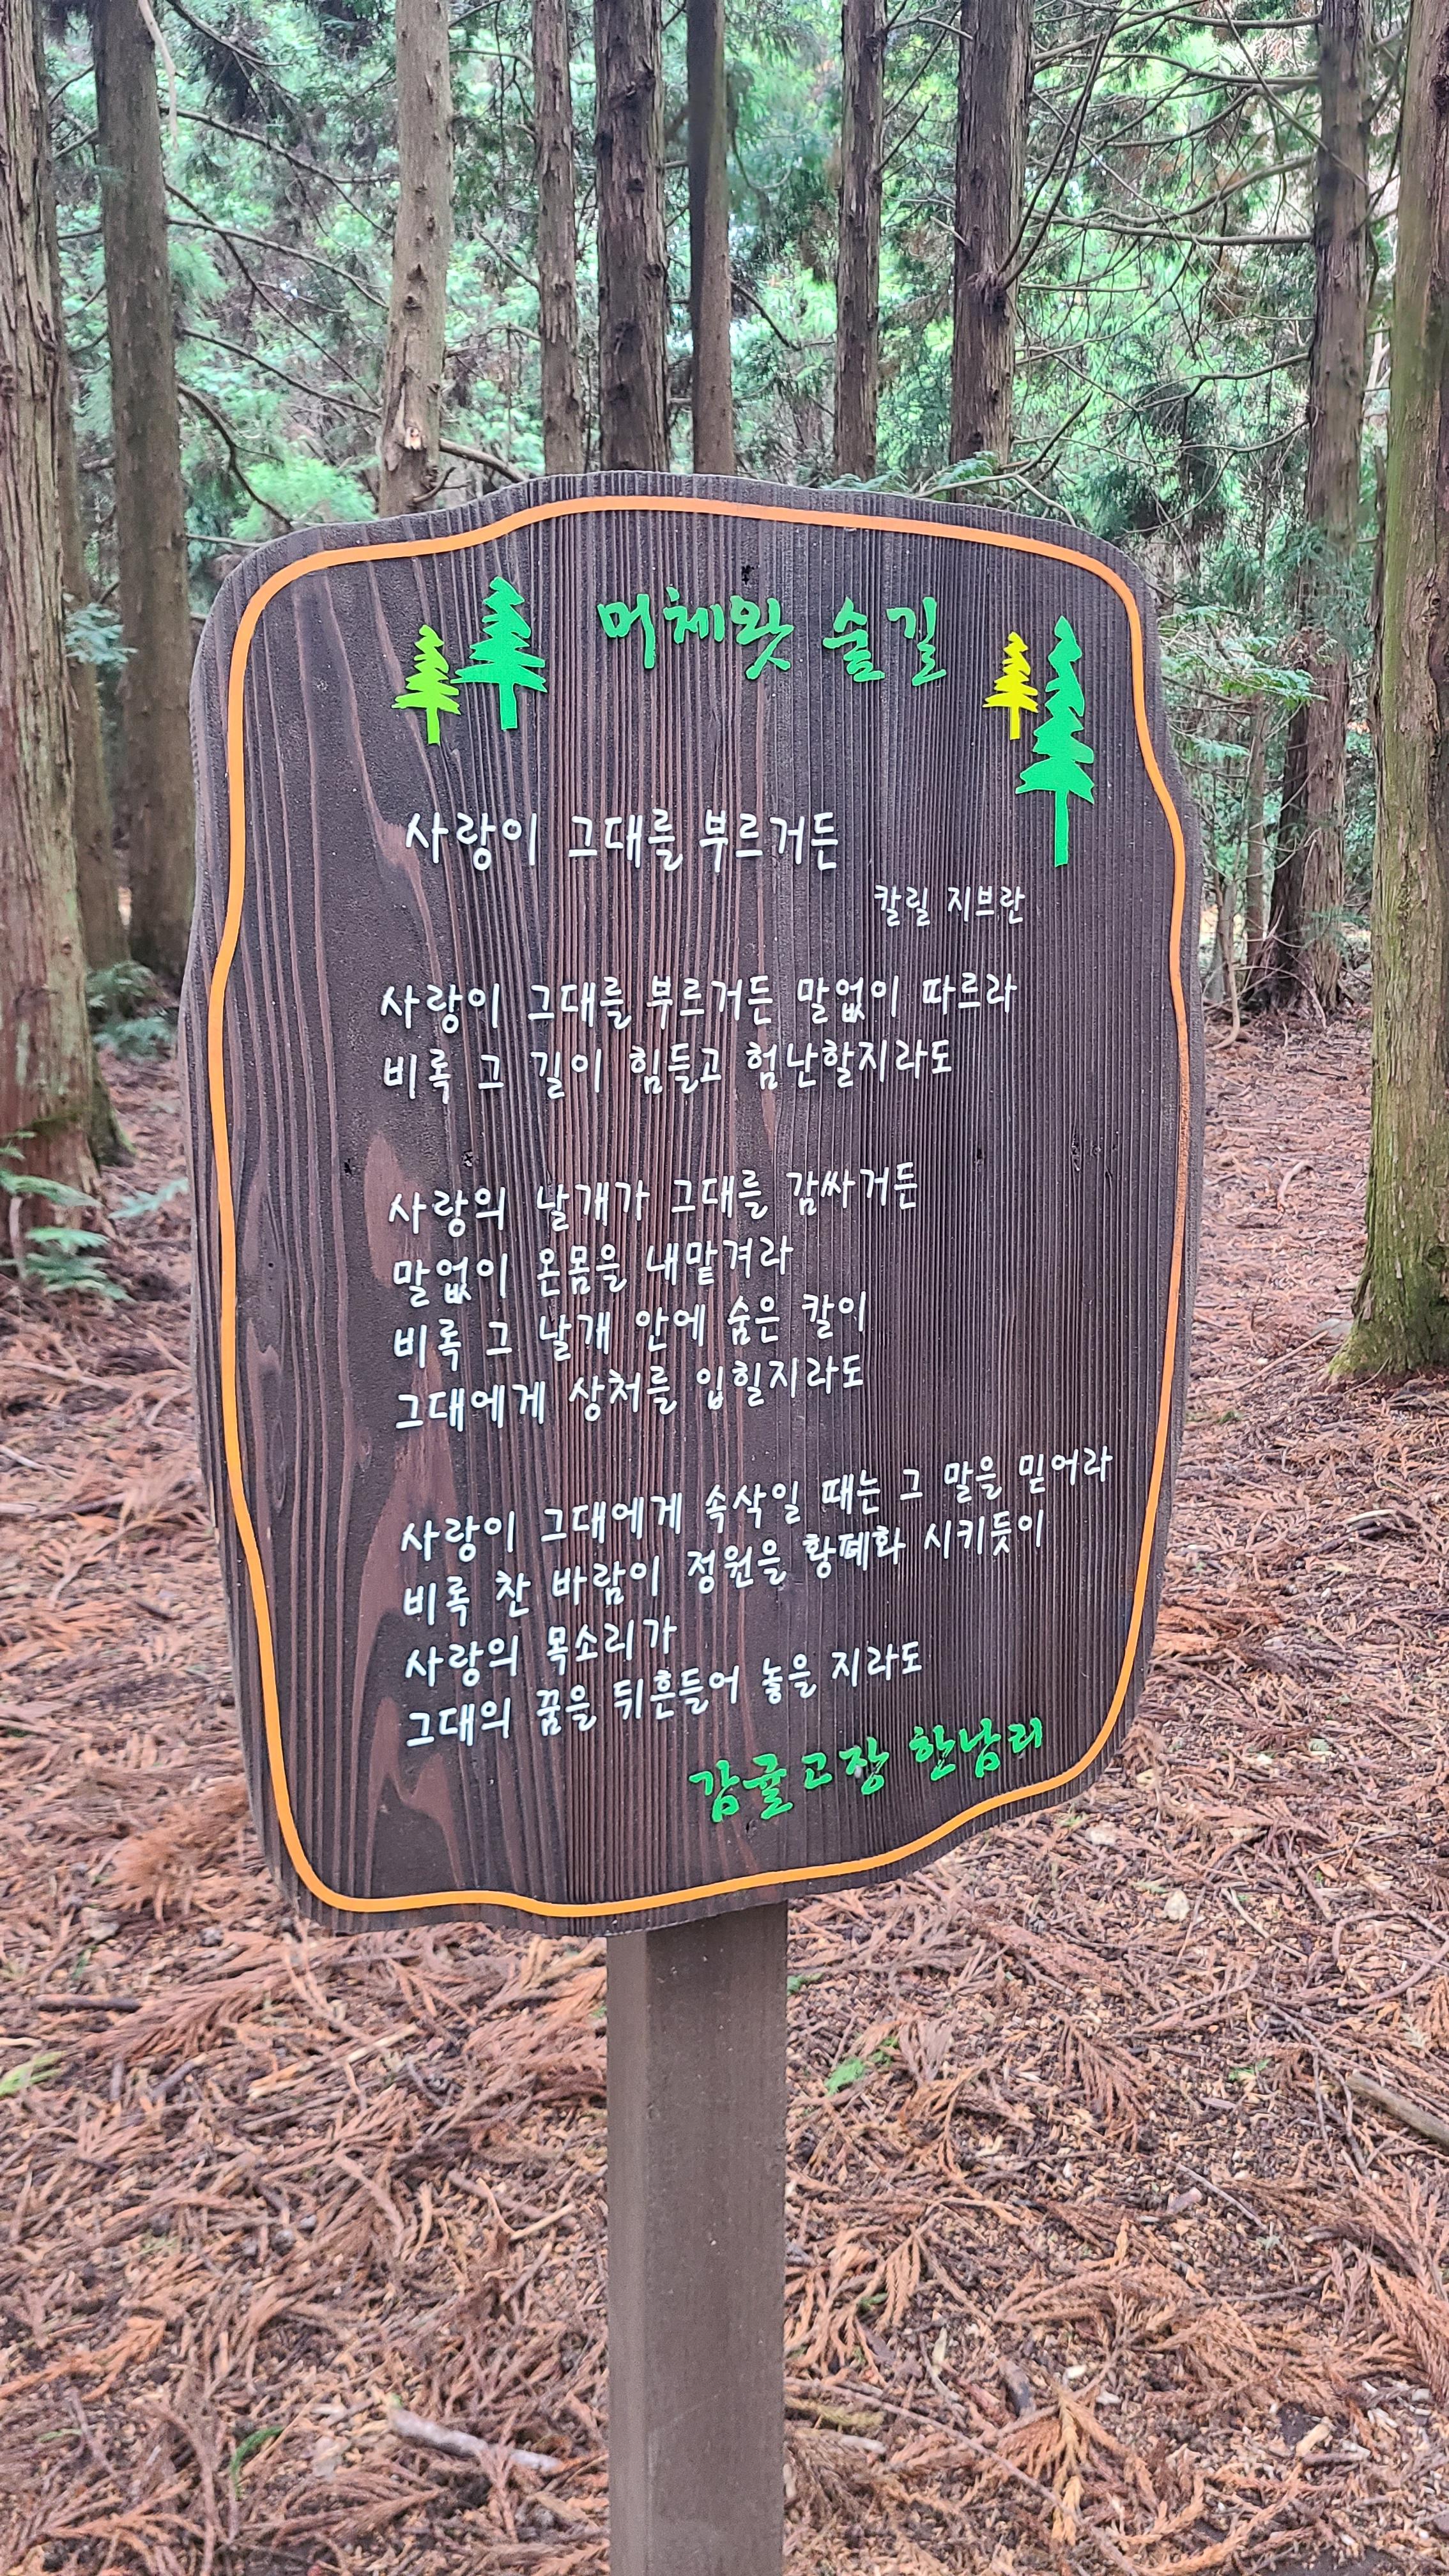 머체왓 숲길
사랑이 그대를 부르거든
칼릴 지브란
사랑이 그대를 부르거든 말없이 따르라
비록 그 길이 힘들고 험난할지라도
사랑의 날개가 그대를 감싸거든
말없이 온몸을 내맡겨라
비록 그 날개 안에 숨은 칼이
그대에게 상처를 입힐지라도
사랑이 그대에게 속삭일 때는 그 말을 믿어라
비록 찬 바람이 정원을 황폐화 시키듯이
사랑의 목소리가
그대의 꿈을 뒤흔들어 놓을 지라도
감귤고장 한남리